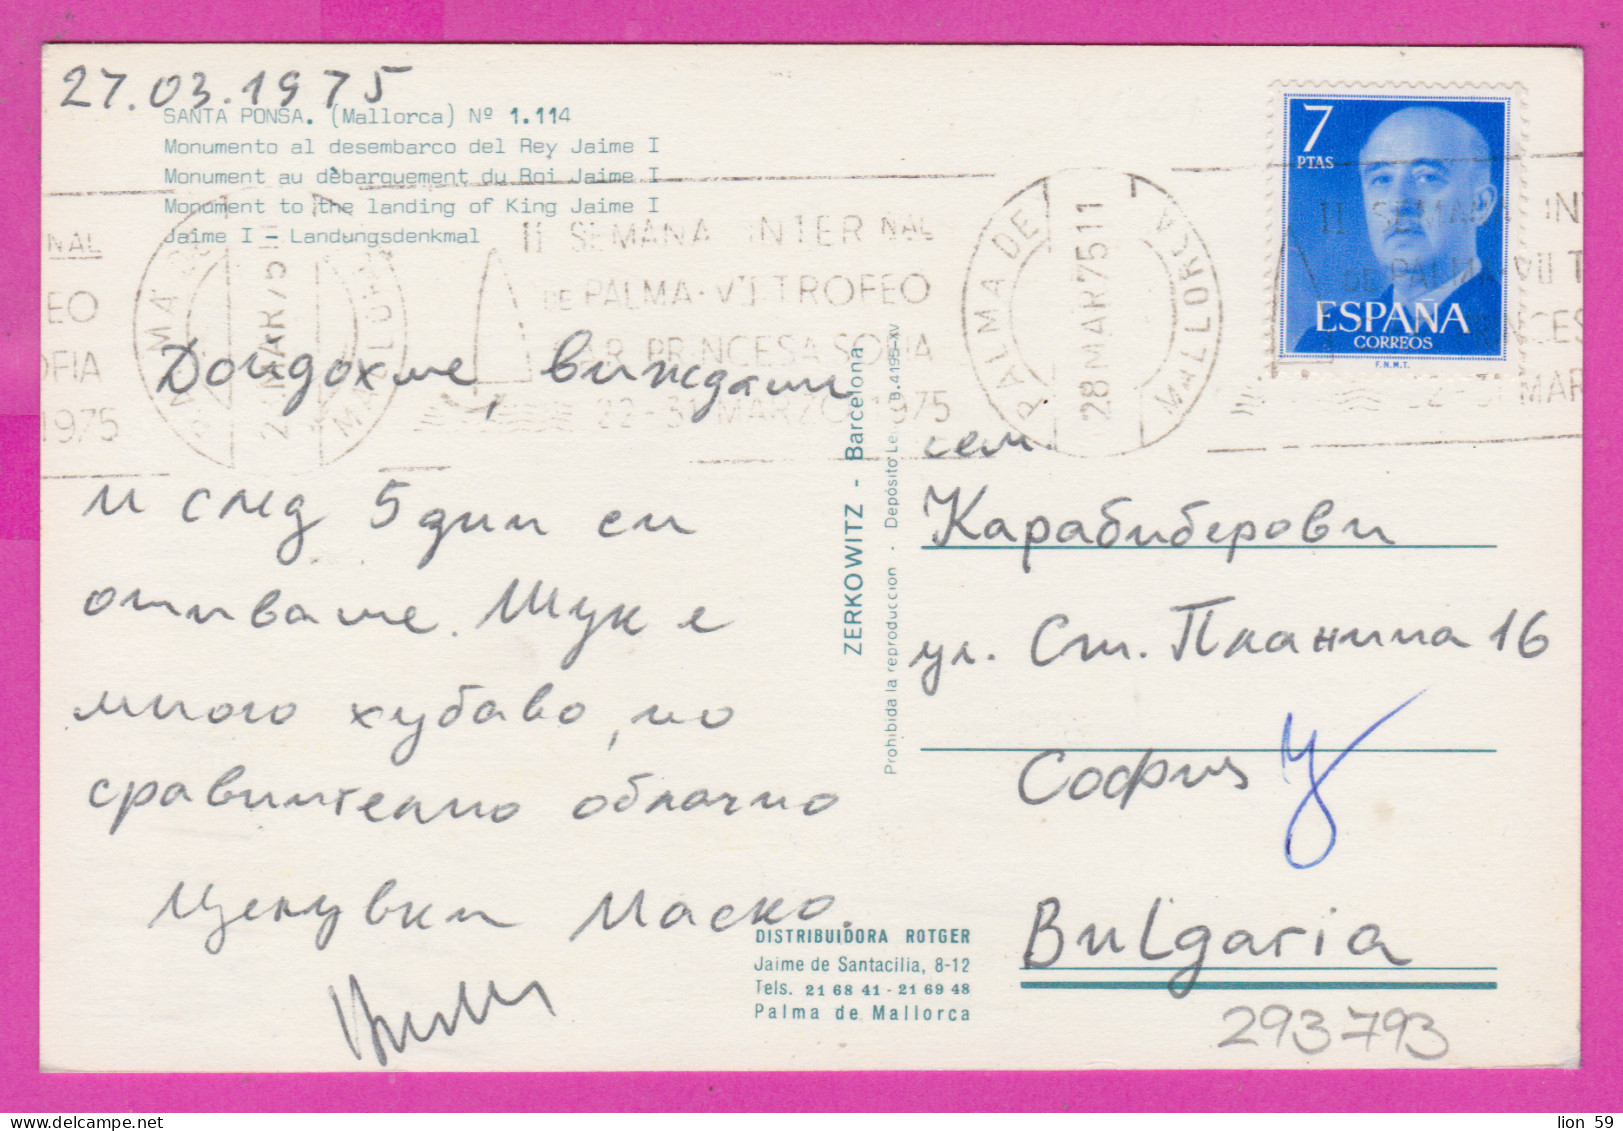 27.03.1975
SANTA PONSA. (Mallorca) Nº 1.114
Monumento al desembarco del Rey Jaime I
Monument au débarquement du Roi Jaime I
Monument to the landing of King Jaime I
Jaime I - Landungsdenkmal
II SEMANA INTERNAL
DE PALMA - VII TROFEO
S.A.R. PRINCESA SOFIA
22-31 MARZO 1975
PALMA DE MALLORCA
28 MAR 75 11
7
PTAS
ESPAÑA
CORREOS
F.N.M.T.
Дойдохме, виждаш
и след 5 дни си
отиваме. Тук е
много хубаво, но
сравнително облачно
Целувки Маско.
ZERKOWITZ - Barcelona
Prohibida la reproduccion - Depósito Le. B.4195-XV
сем.
Карабиберови
ул. Ст. Планина 16
София
Bulgaria
DISTRIBUIDORA ROTGER
Jaime de Santacilia, 8-12
Tels. 21 68 41 - 21 69 48
Palma de Mallorca
293793
lion 59